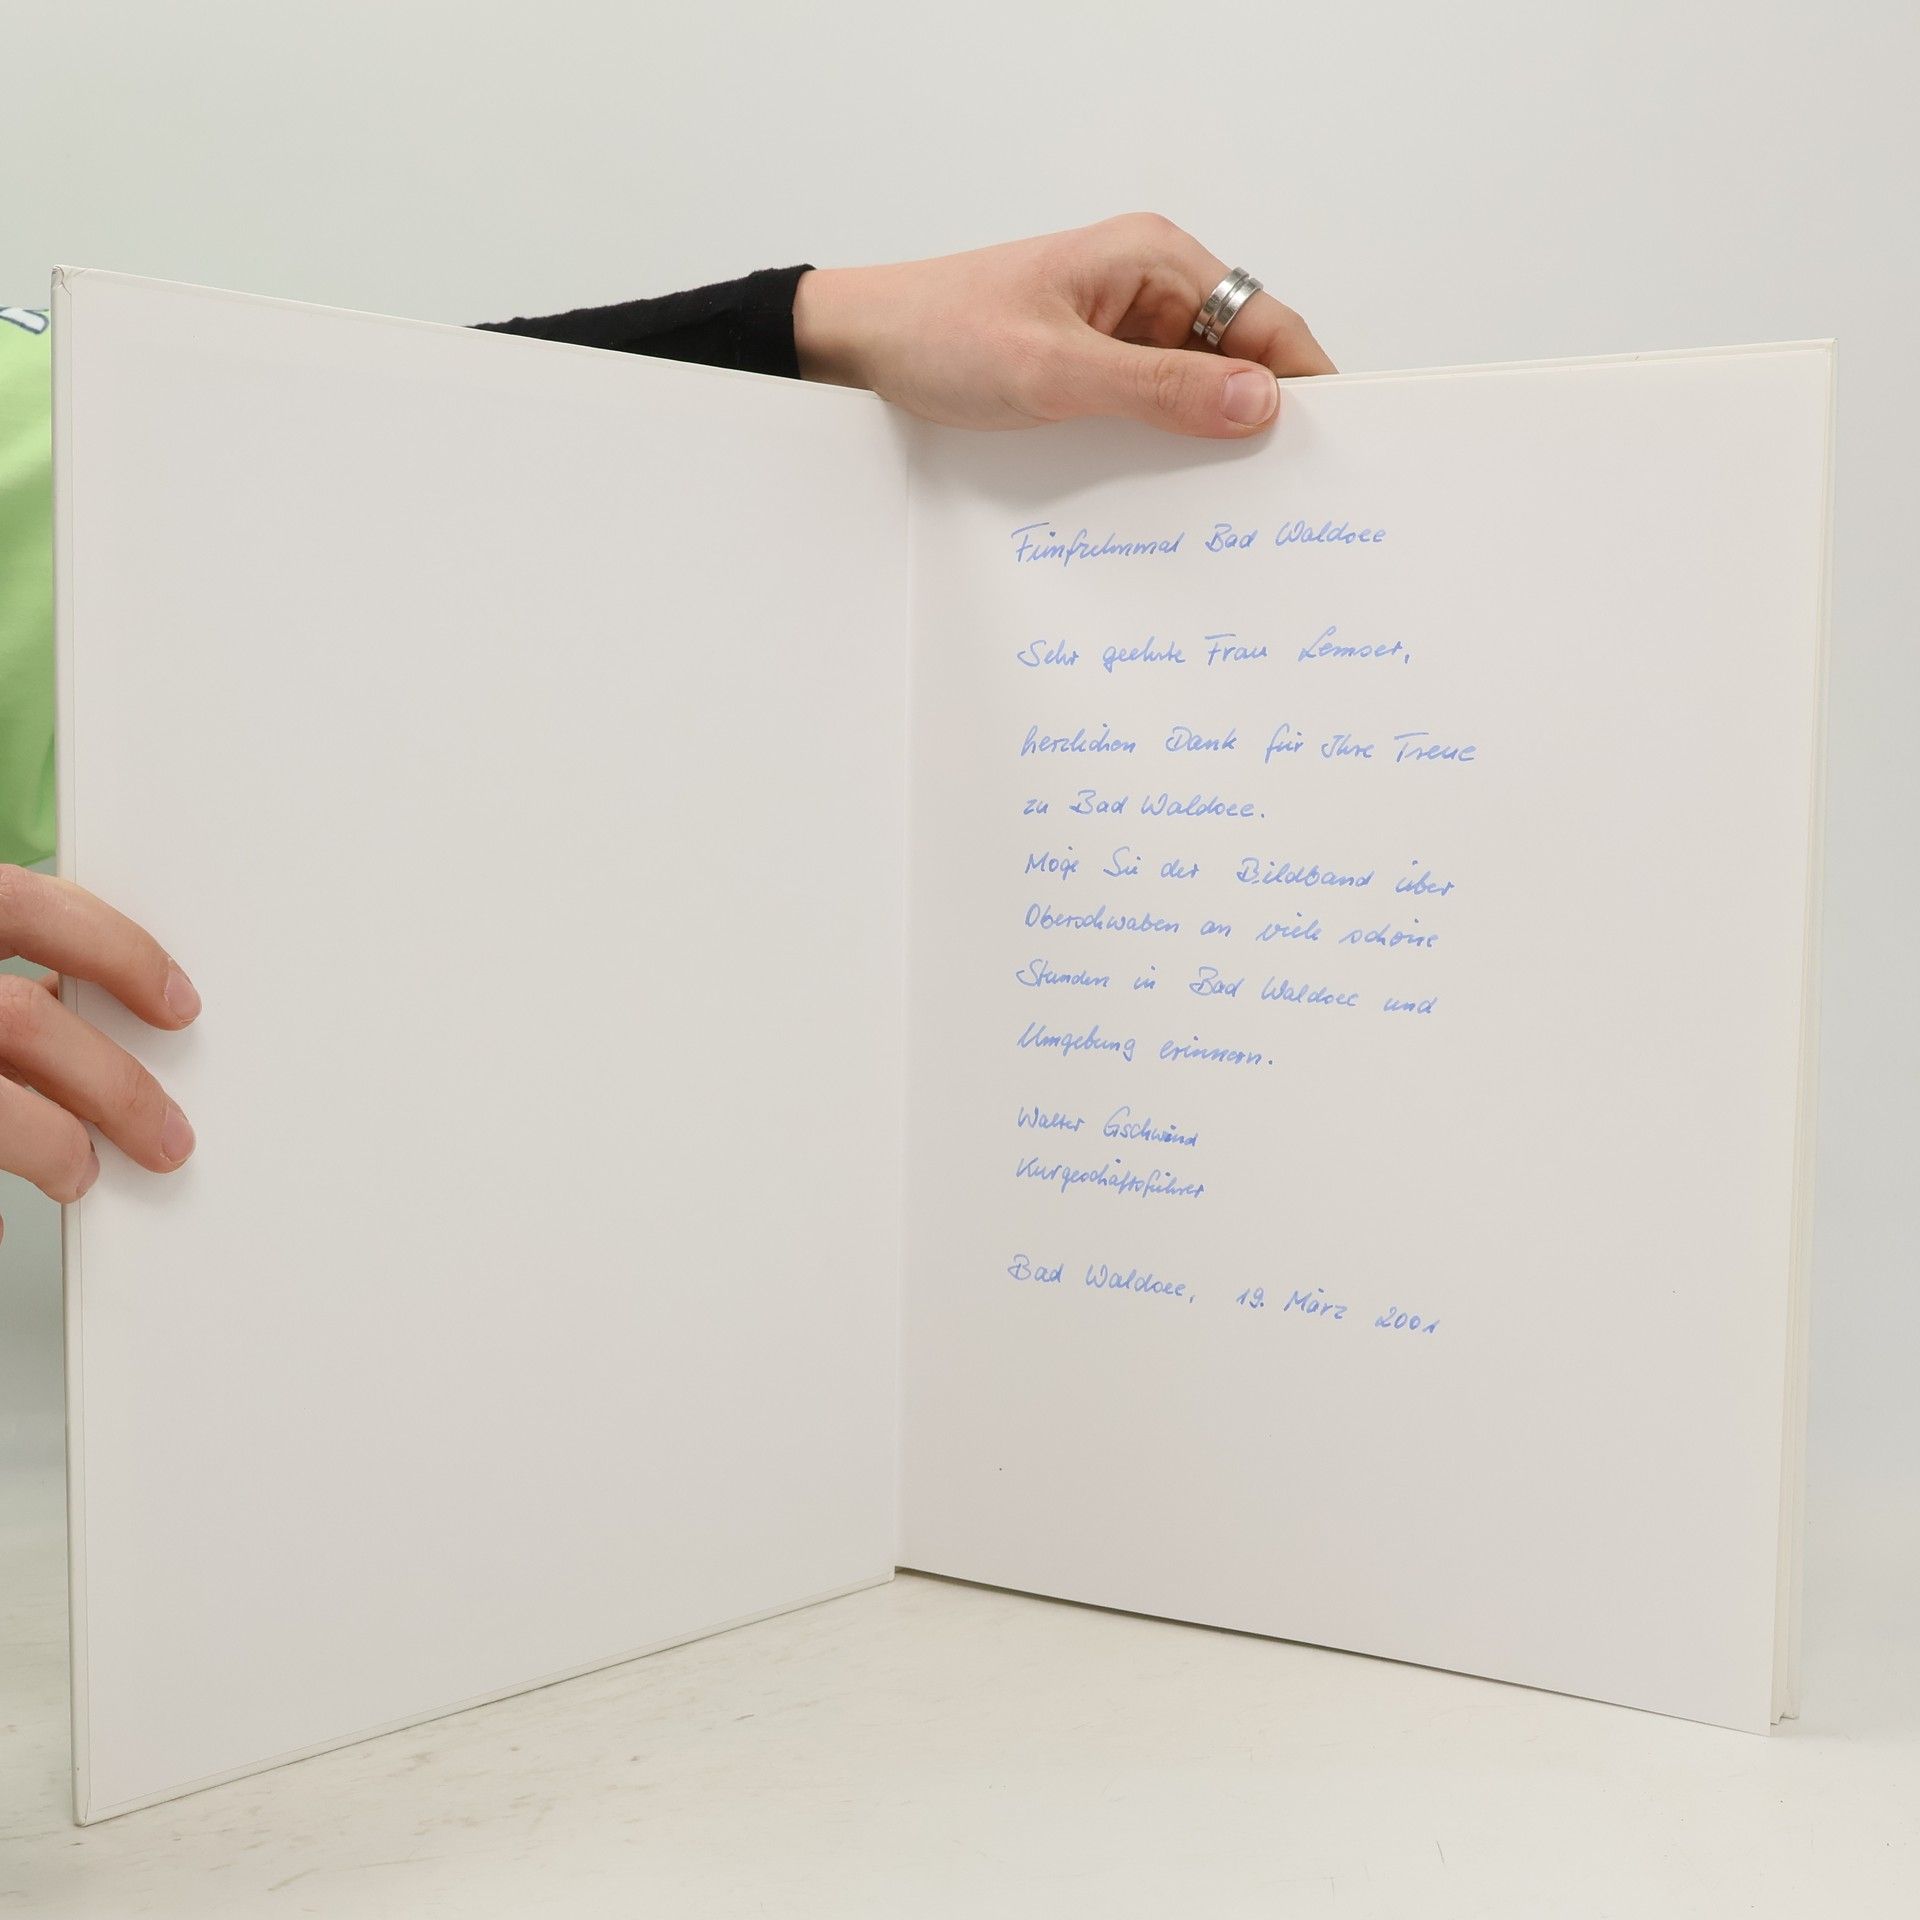 Fünfzehnmal Bad Waldsee
Sehr geehrte Frau Lemser,
herzlichen Dank für Ihre Treue
zu Bad Waldsee.
Möge Sie der Bildband über
Oberschwaben an viele schöne
Stunden in Bad Waldsee und
Umgebung erinnern.
Walter Gschwind
Kurgeschäftsführer
Bad Waldsee, 19. März 2001